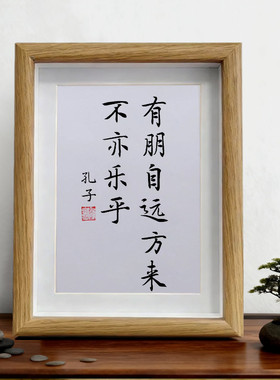 有朋自远方来
不亦乐乎
孔子